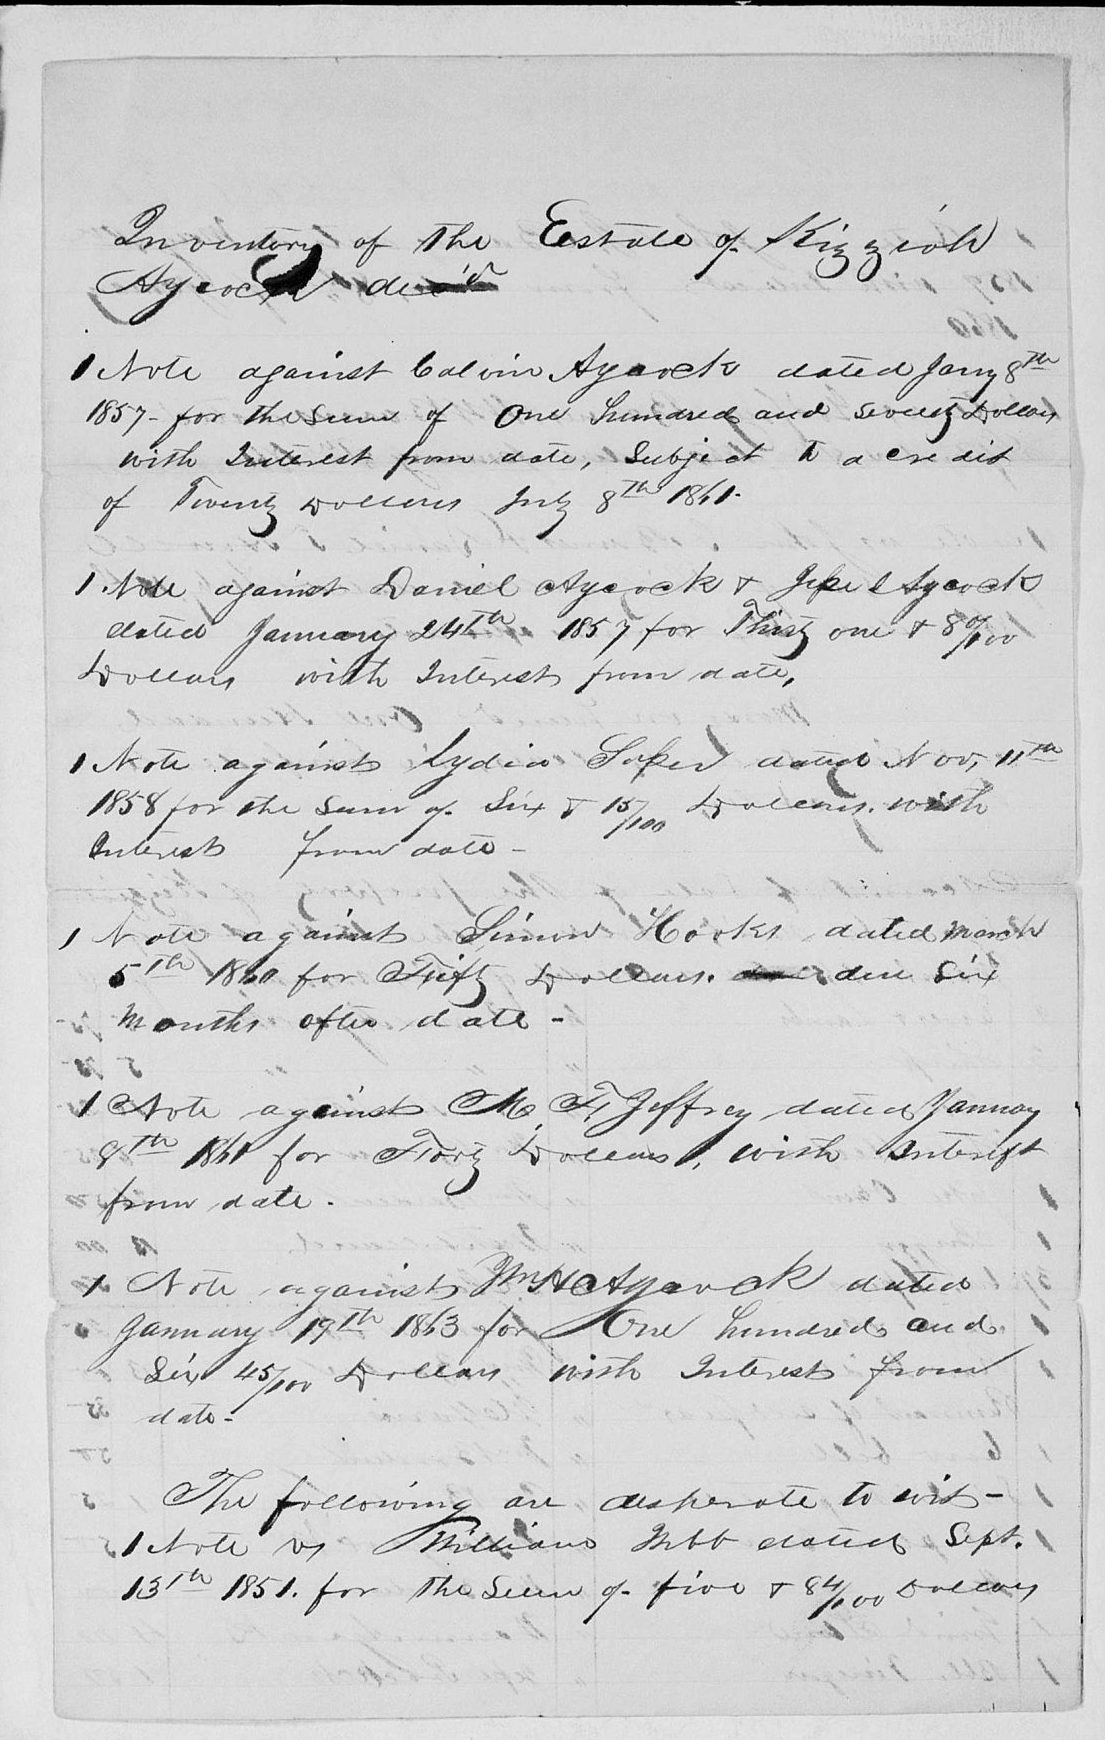 Inventory of the Estate of Kizziah
Aycock dec'd
1 Note against Calvin Aycock dated Jany 8th
1857 - for the Sum of One hundred and Seventy Dollars
with Interest from date, Subject to a credit
of Twenty Dollars July 8th 1861.
1 Note against Daniel Aycock & Jesse Aycock
dated January 24th 1857 for Thirty one & 80/100
Dollars with Interest from date,
1 Note against Lydia dated Nov, 11th
1858 for the Sum of Six & 15/100 Dollars. with
Interest from date -
1 Note against Simon Hooks dated march
5th 1860 for Fifty Dollars. due Six
months after date -
1 Note against M, F, Jeffrey dated January
8th 1861 for Forty Dollars, with Interest
from date.
1 Note against Wm H Aycock dated
January 19th 1863 for One hundred and
Six 45/100 Dollars with Interest from
date -
The following are desperate to wit -
1 Note vs William Webb dated Sept.
13th 1851. for the Sum of five & 84/100 Dollars